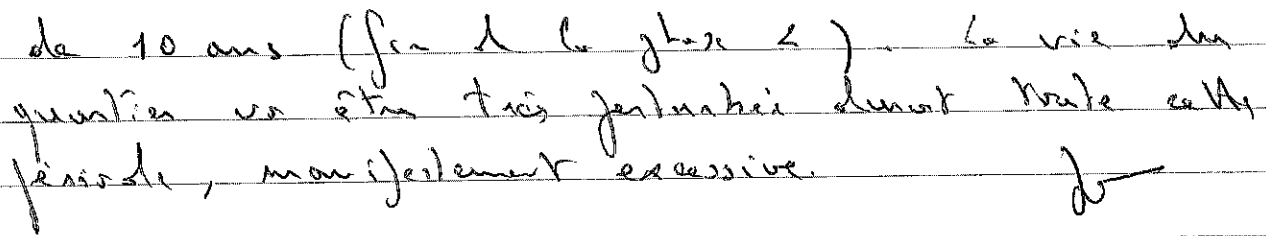 de 10 ans (fin de la phase 2). La vie du
quartier va être très perturbée durant toute cette
période, manifestement excessive.